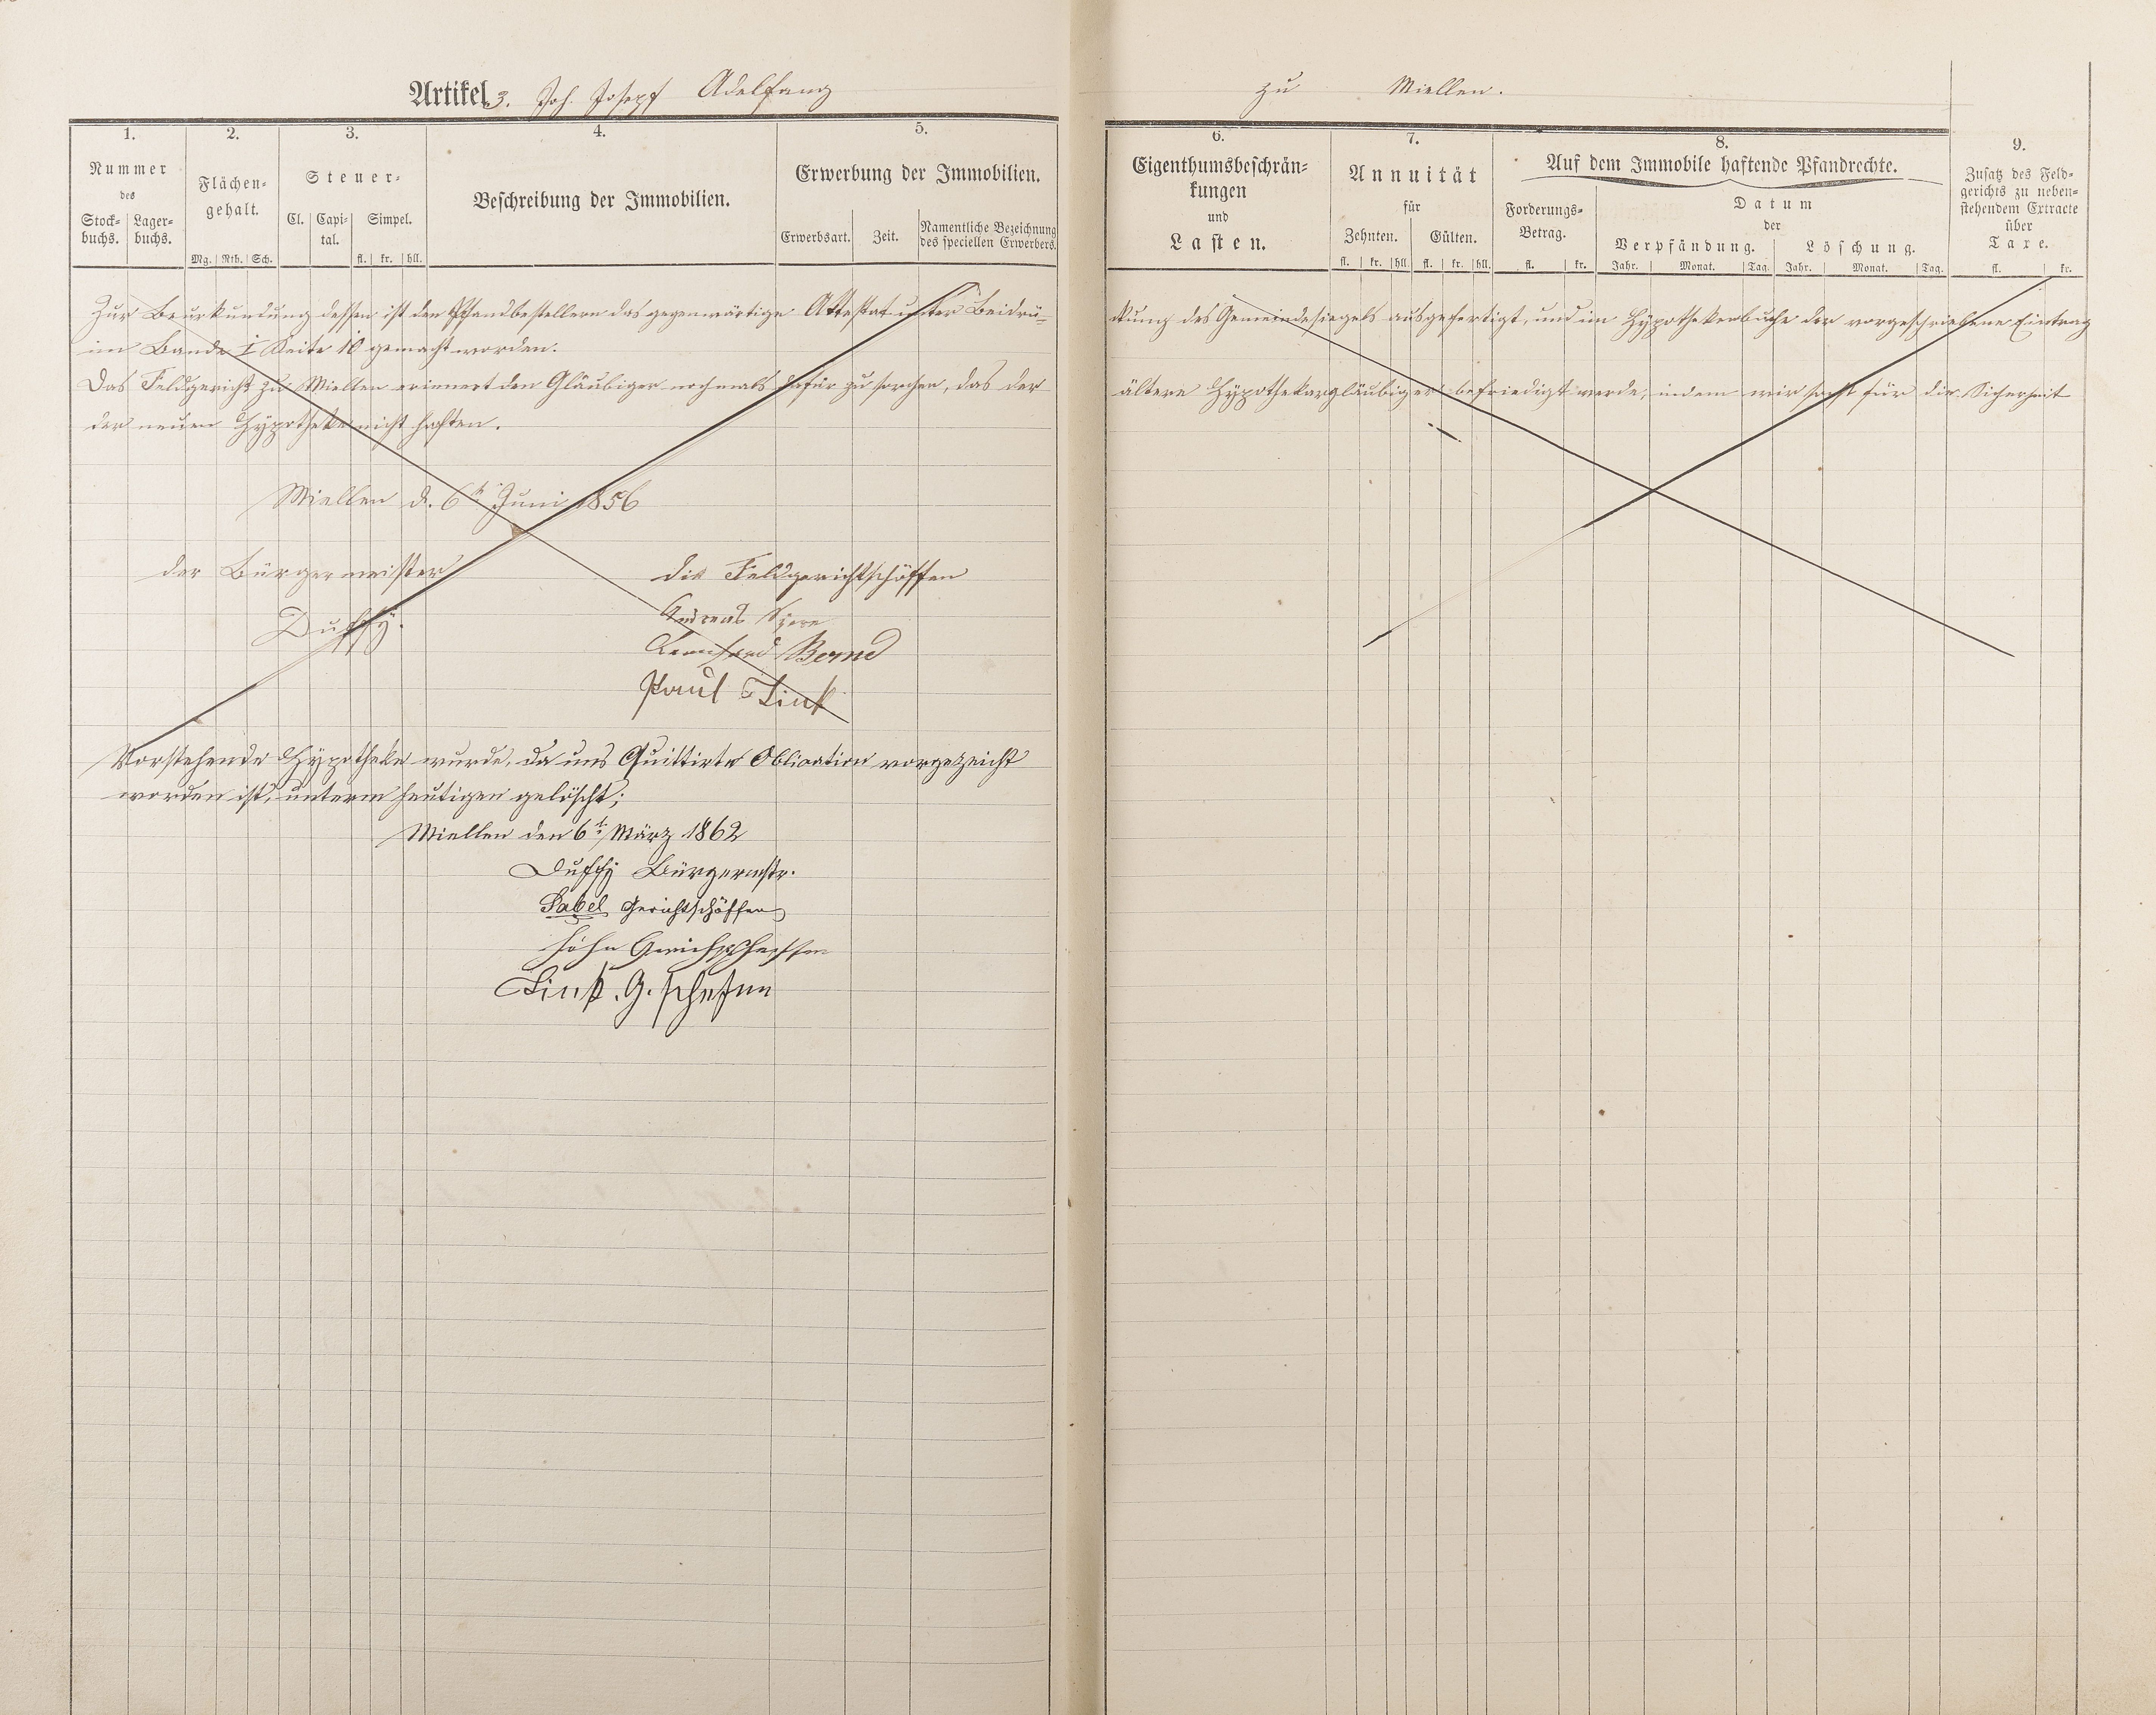 Artikel 3. Joh. Josepf Adelfang
zu Miellen.
1.
2.
3.
4.
5.
6.
7.
8.
9.
Nummer
des
Stock-
buchs.
Lager-
buchs.
Flächen-
gehalt.
Mg. Rth. Sch.
Steuer-
Cl. Capi-
tal.
Simpel.
fl. kr. hll.
Beschreibung der Immobilien.
Erwerbung der Immobilien.
Erwerbsart. Zeit. Namentliche Bezeichnung
des speciellen Erwerbers.
Eigenthumsbeschrän-
kungen
und
Lasten.
Annuität
für
Zehnten. Gülten.
fl. kr. hll. fl. kr. hll.
Auf dem Immobile haftende Pfandrechte.
Forderungs-
Betrag.
fl. kr.
Datum
der
Verpfändung. Löschung.
Jahr. Monat. Tag. Jahr. Monat. Tag.
Zusatz des Feld-
gerichts zu neben-
stehendem Extracte
über
Taxe.
fl. kr.
Zur Beurkundung dessen ist den Pfandbestellern das gegenwärtige Attestat unter Beidrü-
ckung des Gemeindesiegels ausgefertigt, und im Hypothekenbuche der vorgeschriebene Eintrag
im Bande I Seite 10 gemacht worden.
Das Feldgericht zu Miellen erinnert den Gläubiger nochmals dafür zu sorchen, das der
ältere Hypothekargläubiger befriedigt werde, indem wir sonst für die Sicherheit
der neuen Hypotheke nicht haften.
Miellen d. 6t Juni 1856
der Bürgermeister
Duffy.
die Feldgerichtschöffen
Andreas
Bernd
Paul Link
Vorstehende Hypotheke wurde, da uns Quittirte Obligation vorgezeicht
worden ist, unterm heutigen gelöscht;
Miellen den 6t März 1862
Duffy Bürgermstr.
Sabel Gerichtschöffen
Höhn Gerichtscheffen
Link. G. schefen